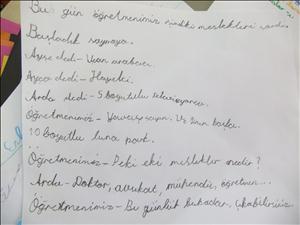 Bu gün öğretmenimiz sindki meslekleri sordu.
Başladık saymaya.
Ayşe dedi - Uzan arabacı.
Ayça dedi - Hayelci.
Arda dedi - 5 boyutulu televizyoncu.
Öğretmenimiz - Ve
10 boyutlu luna park.
Öğretmenimiz - Peki eki meslekler nedir?
Arda - Doktor, avukat, mühendis, öğretmen...
Öğretmenimiz - Bu günlük bukadar, çıkabilirsiniz.